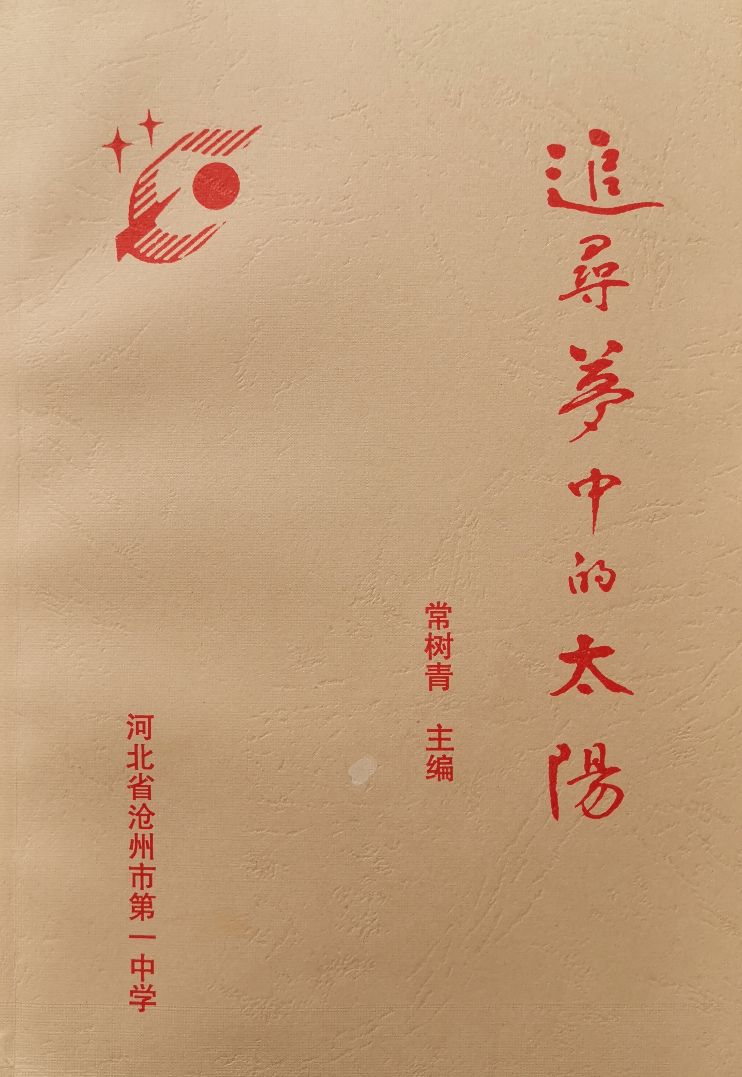 追尋夢中的太陽
常树青 主编
河北省沧州市第一中学